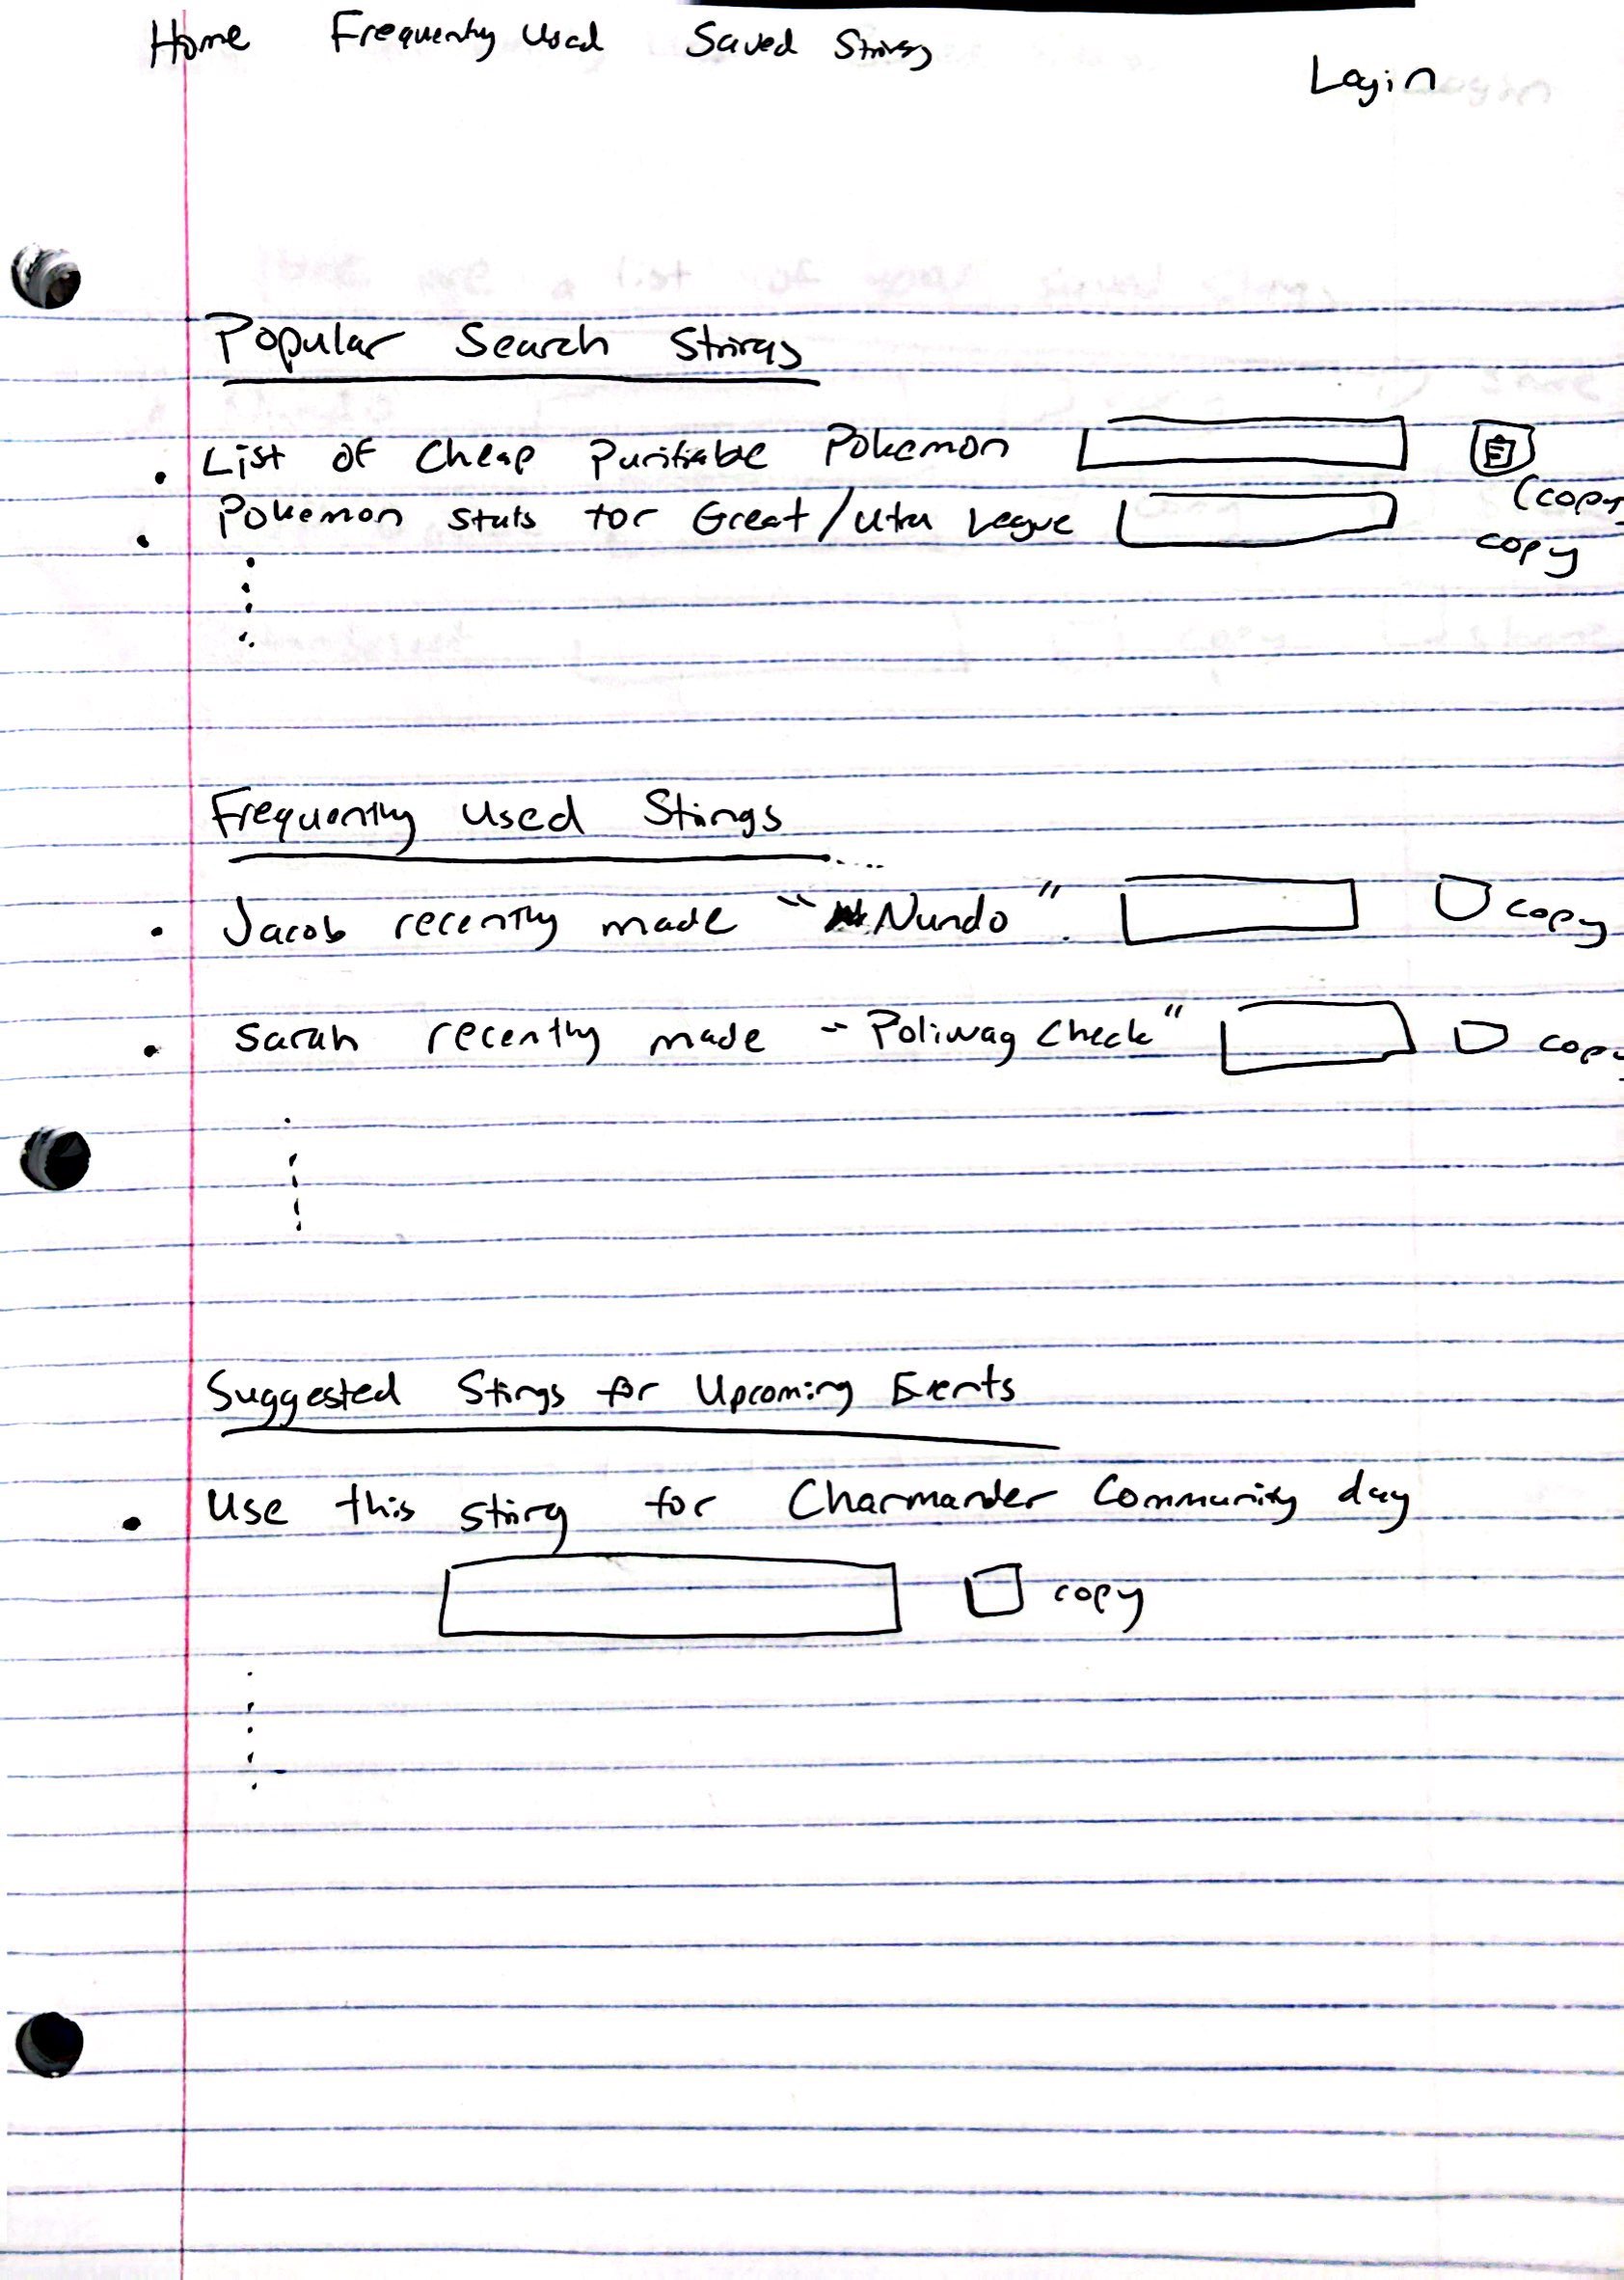 Home Frequently Used Saved Strings
Login
Popular Search Strings
• List of Cheap Purifiable Pokemon
(copy
• Pokemon stats for Great/Ultra League
copy
Frequently Used Strings
• Jacob recently made "Nundo". copy
• Sarah recently made "Poliwag Check" copy
Suggested Stings for Upcoming Events
• Use this string for Charmander Community day
copy